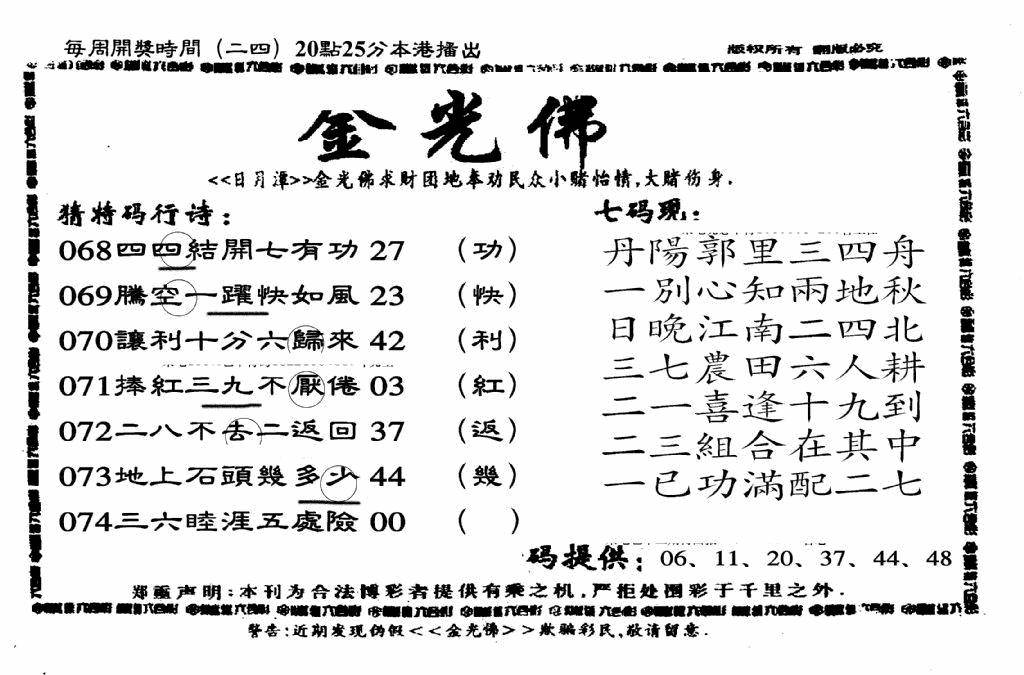 每周開獎時間（二四）20點25分本港播出
版权所有 翻版必究
金光佛
<<日月潭>>金光佛求财团地奉劝民众小赌怡情,大赌伤身.
猜特码行诗：
068四四結開七有功 27 （功）
069騰空一躍快如風 23 （快）
070讓利十分六歸來 42 （利）
071捧紅三九不厭倦 03 （紅）
072二八不去二返回 37 （返）
073地上石頭幾多少 44 （幾）
074三六睦涯五處險 00 （ ）
七码现：
丹陽郭里三四舟
一別心知兩地秋
日晚江南二四北
三七農田六人耕
二一喜逢十九到
二三組合在其中
一已功滿配二七
码提供：06、11、20、37、44、48
郑重声明:本刊为合法博彩者提供有乘之机,严拒处围彩于千里之外.
警告:近期发现伪假<<金光佛>>欺骗彩民,敬请留意.